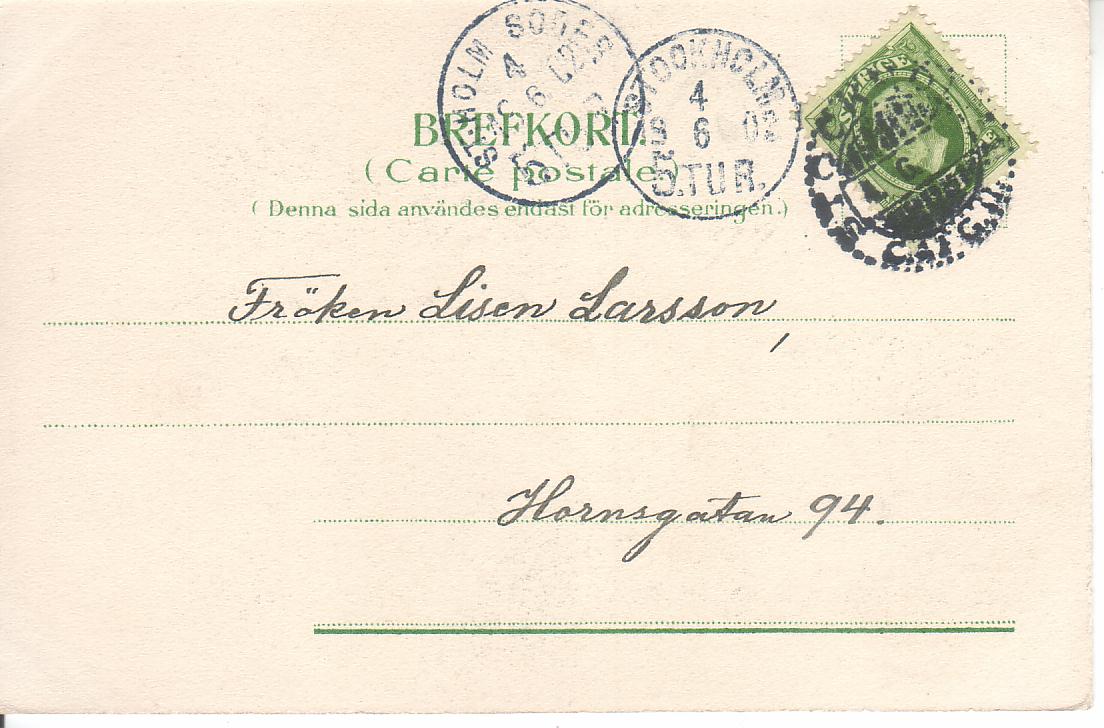 ST-HOLM SÖDER
4
6
BREFKORT.
(Carte postale.)
(Denna sida användes endast för adresseringen.)
STOCKHOLM
4
19 6 02
5.TUR.
SVERIGE
Fröken Lisen Larsson,
Hornsgatan 94.